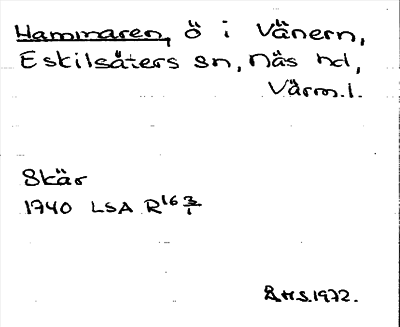 Hammaren, ö i Vänern,
Eskilsäters sn, Näs hd,
Värm.l.
Skär
1740 LSA R16 3/1
Å.H.S. 1972.